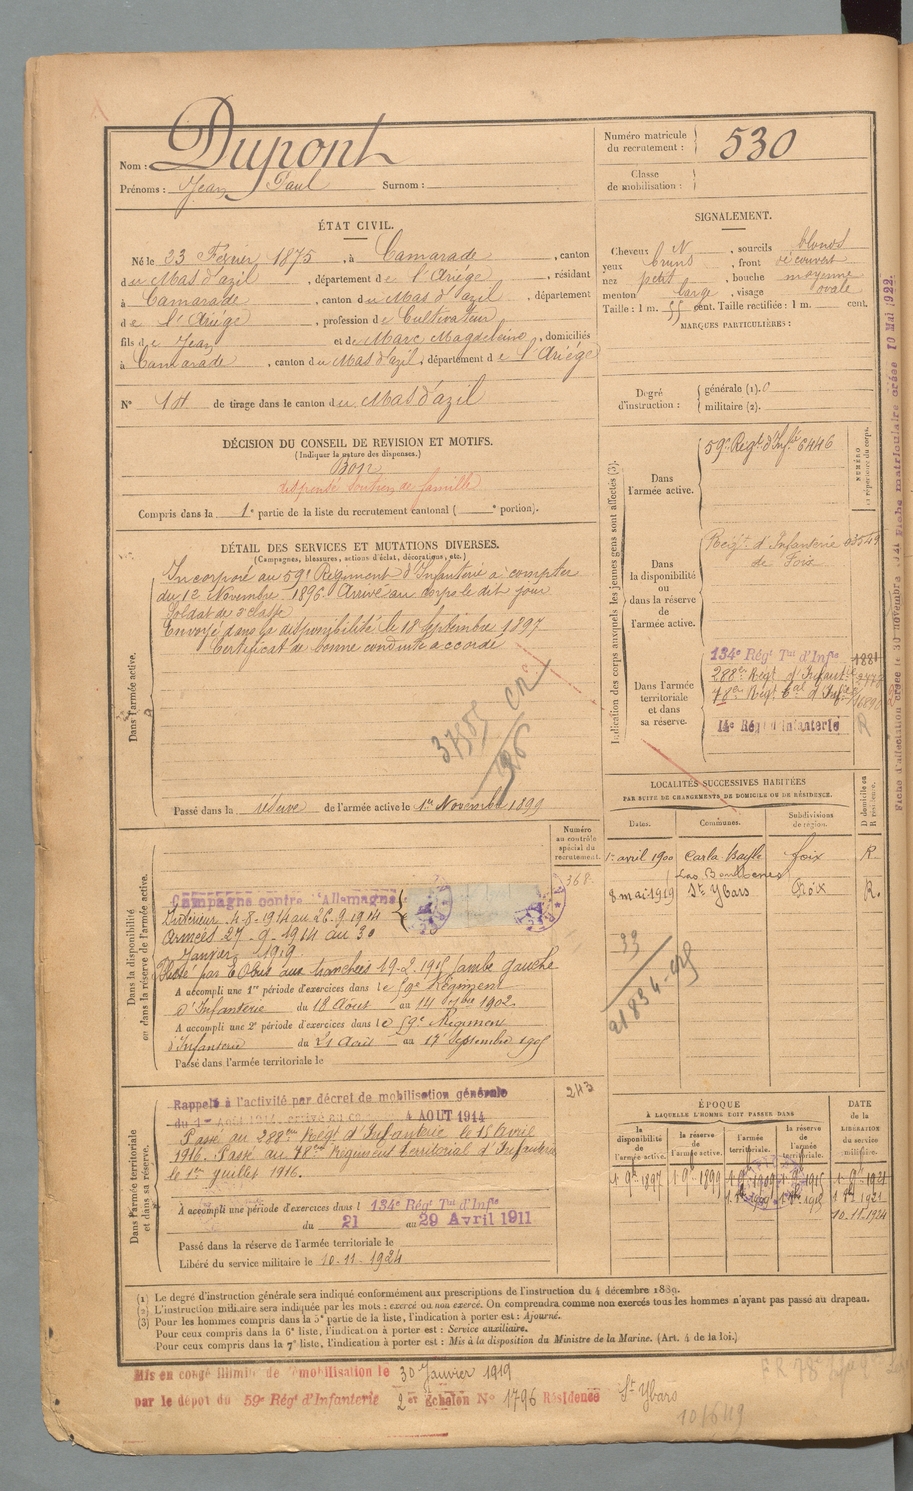 Nom : Dupont
Prénoms : Jean Paul Surnom :
Numéro matricule du recrutement : 530
Classe de mobilisation :
ÉTAT CIVIL.
Né le 23 Février 1875, à Camarade, canton
du Mas d'azil, département de l'Ariége, résidant
à Camarade, canton du Mas d'azil, département
de l'Ariége, profession de Cultivateur
fils de Jean et de Marc Magdeleine, domiciliés
à Camarade, canton du Mas d'azil, département de l'Ariége
N° de tirage dans le canton du Mas d'azil
SIGNALEMENT.
Cheveux N, sourcils blonds
yeux bruns, front découvert
nez petit, bouche moyenne
menton large, visage ovale
Taille : 1 m. 55 cent. Taille rectifiée : 1 m. cent.
MARQUES PARTICULIÈRES :
Degré d'instruction : générale (1). 0
militaire (2).
DÉCISION DU CONSEIL DE REVISION ET MOTIFS.
(Indiquer la nature des dispenses.)
Bon
dispensé soutien de famille
Compris dans la 1e partie de la liste du recrutement cantonal ( e portion).
DÉTAIL DES SERVICES ET MUTATIONS DIVERSES.
(Campagnes, blessures, actions d'éclat, décorations, etc.)
Dans l'armée active.
Incorporé au 59e Régiment d'Infanterie à compter
du 12 Novembre 1896. Arrivé au corps le dit jour
Soldat de 2e classe
Envoyé dans la disponibilité le 18 Septembre 1897
Certificat de bonne conduite accordé
Passé dans la réserve de l'armée active le 1er Novembre 1899
Indication des corps auxquels les jeunes gens sont affectés (3).
NUMÉRO au répertoire du corps.
Dans l'armée active.
59e Régt d'Infie 6446
Dans la disponibilité ou dans la réserve de l'armée active.
Régt d'Infanterie
de Foix
Dans l'armée territoriale et dans sa réserve.
134e Régt Tal d'Infie
288me Régt d'Infanterie
78me Régt Tal d'Infie
14e Régt d'Infanterie
R
LOCALITÉS SUCCESSIVES HABITÉES
PAR SUITE DE CHANGEMENTS DE DOMICILE OU DE RÉSIDENCE.
Dates. Communes. Subdivisions de région. D domicile ou R résidence.
1er avril 1900 Carla Bayle foix R.
8 mai 1919 St Ybars Foix R.
Numéro au contrôle spécial du recrutement.
368
Dans la disponibilité ou dans la réserve de l'armée active.
Campagne contre l'Allemagne
Intérieur 4-8-1914 au 26-9-1914
Armées 27-9-1914 au 30
Janvier 1919
Blessé par éc. Obus aux tranchées 19-2-1915 Jambe gauche
A accompli une 1re période d'exercices dans le 59e Régiment
d'Infanterie du 18 Août au 14 7bre 1902.
A accompli une 2e période d'exercices dans le 59e Régiment
d'Infanterie du 21 Août au 17 Septembre 1905
Passé dans l'armée territoriale le
243
Dans l'armée territoriale et dans sa réserve.
Rappelé à l'activité par décret de mobilisation générale
du 1er Août 1914, arrivé au corps 4 AOUT 1914
Passé au 288me Régt d'Infanterie le 15 Avril
1916. Passé au 78me Régiment territorial d'Infanterie
le 1er Juillet 1916.
A accompli une période d'exercices dans l 134e Régt Tal d'Infie
du 21 au 29 Avril 1911
Passé dans la réserve de l'armée territoriale le
Libéré du service militaire le 10-11-1924
ÉPOQUE
À LAQUELLE L'HOMME DOIT PASSER DANS
DATE de la LIBÉRATION du service militaire.
la disponibilité de l'armée active. la réserve de l'armée active. l'armée territoriale. la réserve de l'armée territoriale.
1 9e 1897 1 9e 1899 1 9e 1909 1 9e 1915 1 9e 1921
10-11-1924
(1) Le degré d'instruction générale sera indiqué conformément aux prescriptions de l'instruction du 4 décembre 1889.
(2) L'instruction militaire sera indiquée par les mots : exercé ou non exercé. On comprendra comme non exercés tous les hommes n'ayant pas passé au drapeau.
(3) Pour les hommes compris dans la 5e partie de la liste, l'indication à porter est : Ajourné.
Pour ceux compris dans la 6e liste, l'indication à porter est : Service auxiliaire.
Pour ceux compris dans la 7e liste, l'indication à porter est : Mis à la disposition du Ministre de la Marine. (Art. 4 de la loi.)
Mis en congé illimité de démobilisation le 30 Janvier 1919
par le dépot du 59e Régt d'Infanterie 2e Echelon N° 1796 Résidence St Ybars
10/6/19